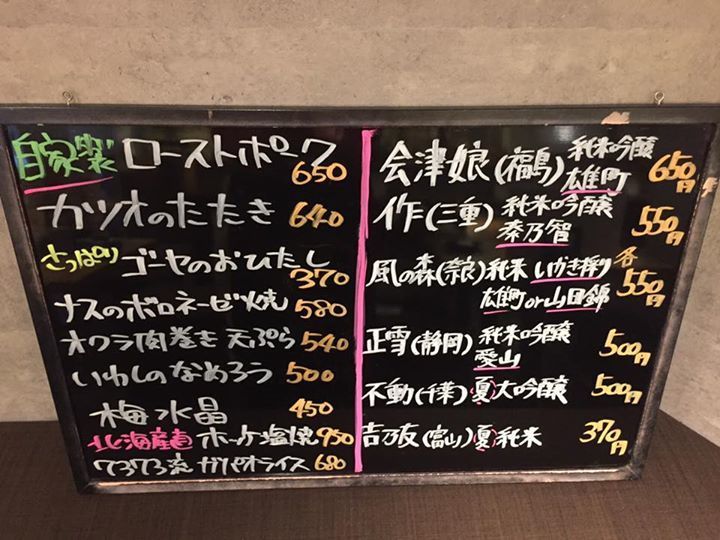 自家製 ローストポーク 650
カツオのたたき 640
さっぱり ゴーヤのおひたし 370
ナスのボロネーゼ焼 580
オクラ肉巻き天ぷら 540
いわしのなめろう 500
梅水晶 450
北海産直 ホッケ塩焼 950
ワヌワヌ流 ガパオライス 680
会津娘(福島) 純米吟醸 雄町 650円
作(三重) 純米吟醸 奏乃智 550円
風の森(奈良) 純米 いかき採り 各550円
雄町 or 山田錦
正雪(静岡) 純米吟醸 愛山 500円
不動(千葉) 夏 大吟醸 500円
吉乃友(富山) 夏 純米 370円